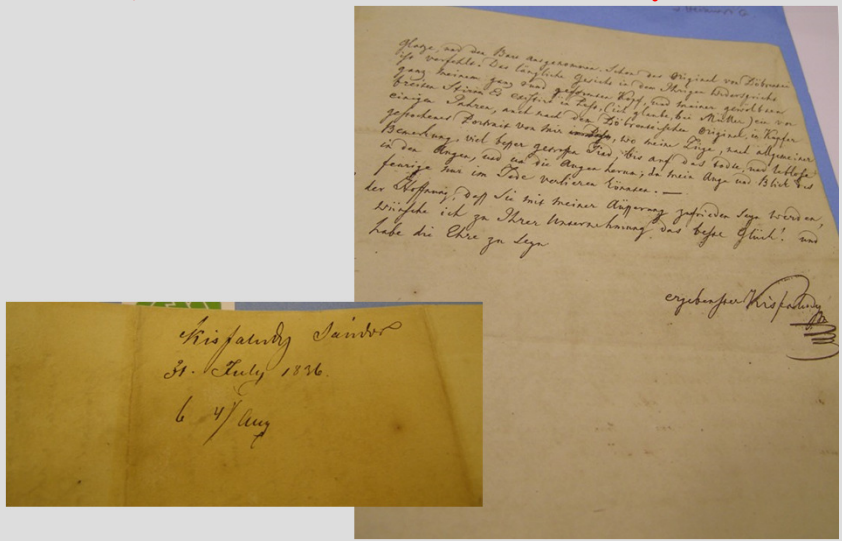 Glatze, und der Bart ausgenommen. Schon das Original von
ist verfehlt. Das längliche Gesicht in den
ganz meinem ganz rund Kopf, und meiner
breiten Stirne. Es existirt in (ich glaube, bei Müller) ein vor
einigen Jahren, auch nach dem Original, in Kupfer
gestochenes Portrait von mir wo meine Züge, nach allgemeiner
Bemerkung, viel besser getroffen sind, bis auf das todte, und leblose
in den Augen, und um die Augen herum; da mein Auge und Blick das
feurige nur im Tode verlieren können. —
der Hoffnung, daß Sie mit meiner Äußerung zufrieden seyn werden,
wünsche ich zu Ihrer Unternehmung das beste Glück! und
habe die Ehre zu seyn
ergebenster Kisfaludy
Kisfaludy Sándor
31. July 1836.
6 4/ Aug